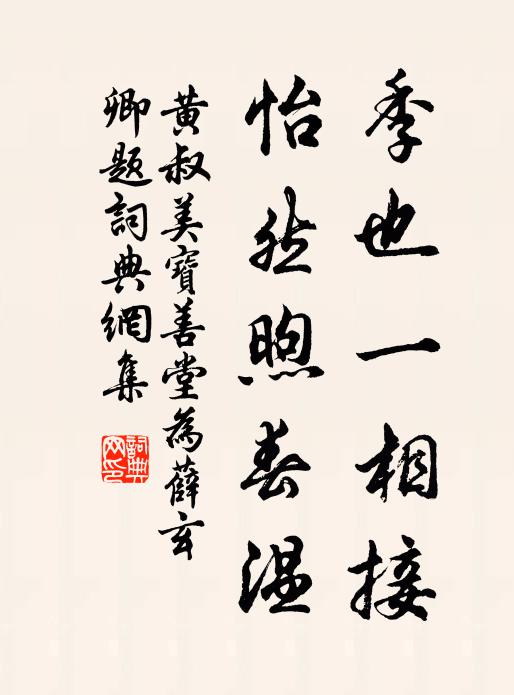 季也一相接
怡然煦春温
黄叔美寶善堂為薛玄
卿題詞典網集
詞典網印